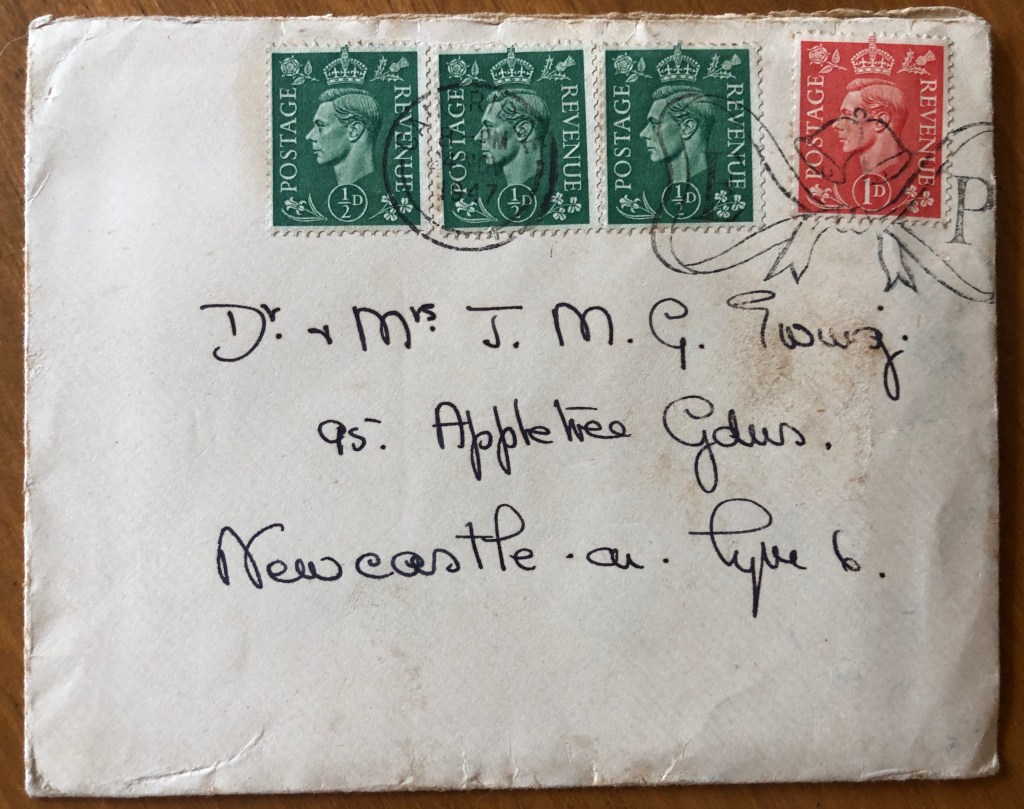 POSTAGE REVENUE ½D
POSTAGE REVENUE ½D
POSTAGE REVENUE ½D
POSTAGE REVENUE 1D
47
P
Dr. + Mrs. J. M. G.
95. Appletree Gdns.
Newcastle. on. Tyne 6.